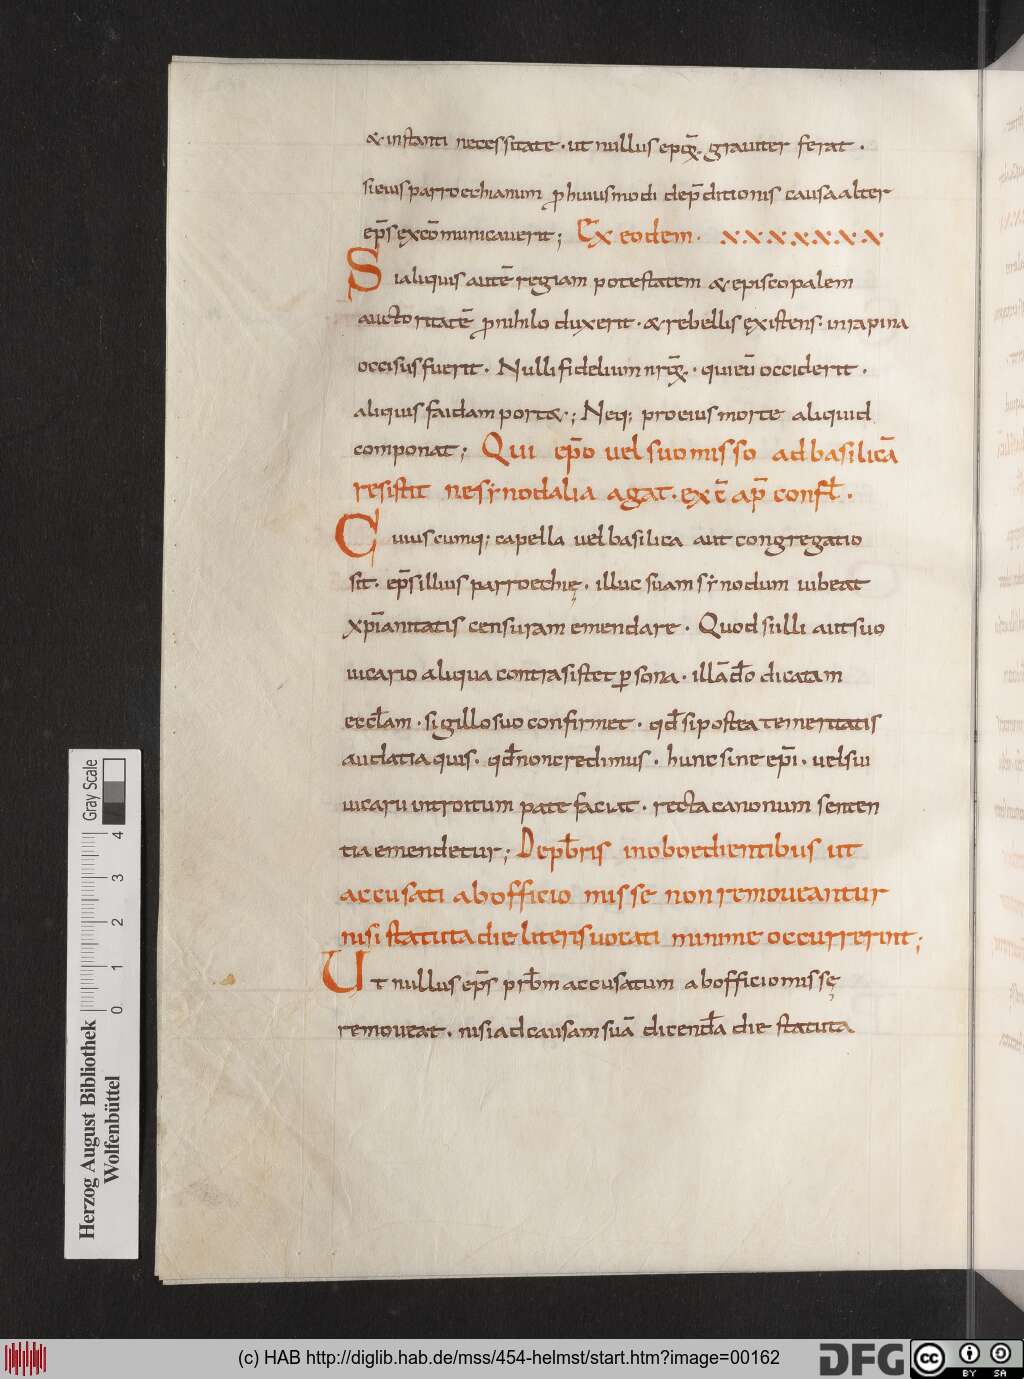 & instanti necessitate · ut nullus epōꝝ grauiter ferat ·
si eius parrochianum ꝓ huiusmodi dep̄ditionis causa alter
ep̄s excōmunicauerit; Ex eodem ·
Si aliquis autē regiam potestatem & episcopalem
auctoritatē ꝓ nihilo duxerit · & rebellis existens · in rapina
occisus fuerit · Nulli fidelium nr̄oꝝ · qui eū occiderit ·
aliquis faidam port&; Neq; pro eius morte aliquid
componat; Qui ep̄o uel suo misso ad basilicā
resistit ne synodalia agat · ex c̄ ap̄ confl ·
Cuiuscumq; capella uel basilica aut congregatio
sit · ep̄s illius parroechię · illuc suam synodum iubeat
xp̄ianitatis censuram emendare · Quod si illi aut suo
uicario aliqua contrasistet ꝑsona · illā dō dicatam
eccl̄am · sigillo suo confirmet · qd̄ si postea temeritatis
audatia quis · qd̄ non credimus · hunc sine ep̄i · uel sui
uicarii introitum patefaciat · recta canonum senten
tia emendetur; De pb̄ris inoboedientibus ut
accusati ab officio missę non remoueantur
nisi statuta die literis uocati minime occurrerint;
Ut nullus ep̄s prb̄m accusatum ab officio missę
remoueat · nisi ad causam suā dicendā die statuta
Herzog August Bibliothek
Wolfenbüttel
0 1 2 3 4
Gray Scale
(c) HAB http://diglib.hab.de/mss/454-helmst/start.htm?image=00162
DFG
cc BY SA